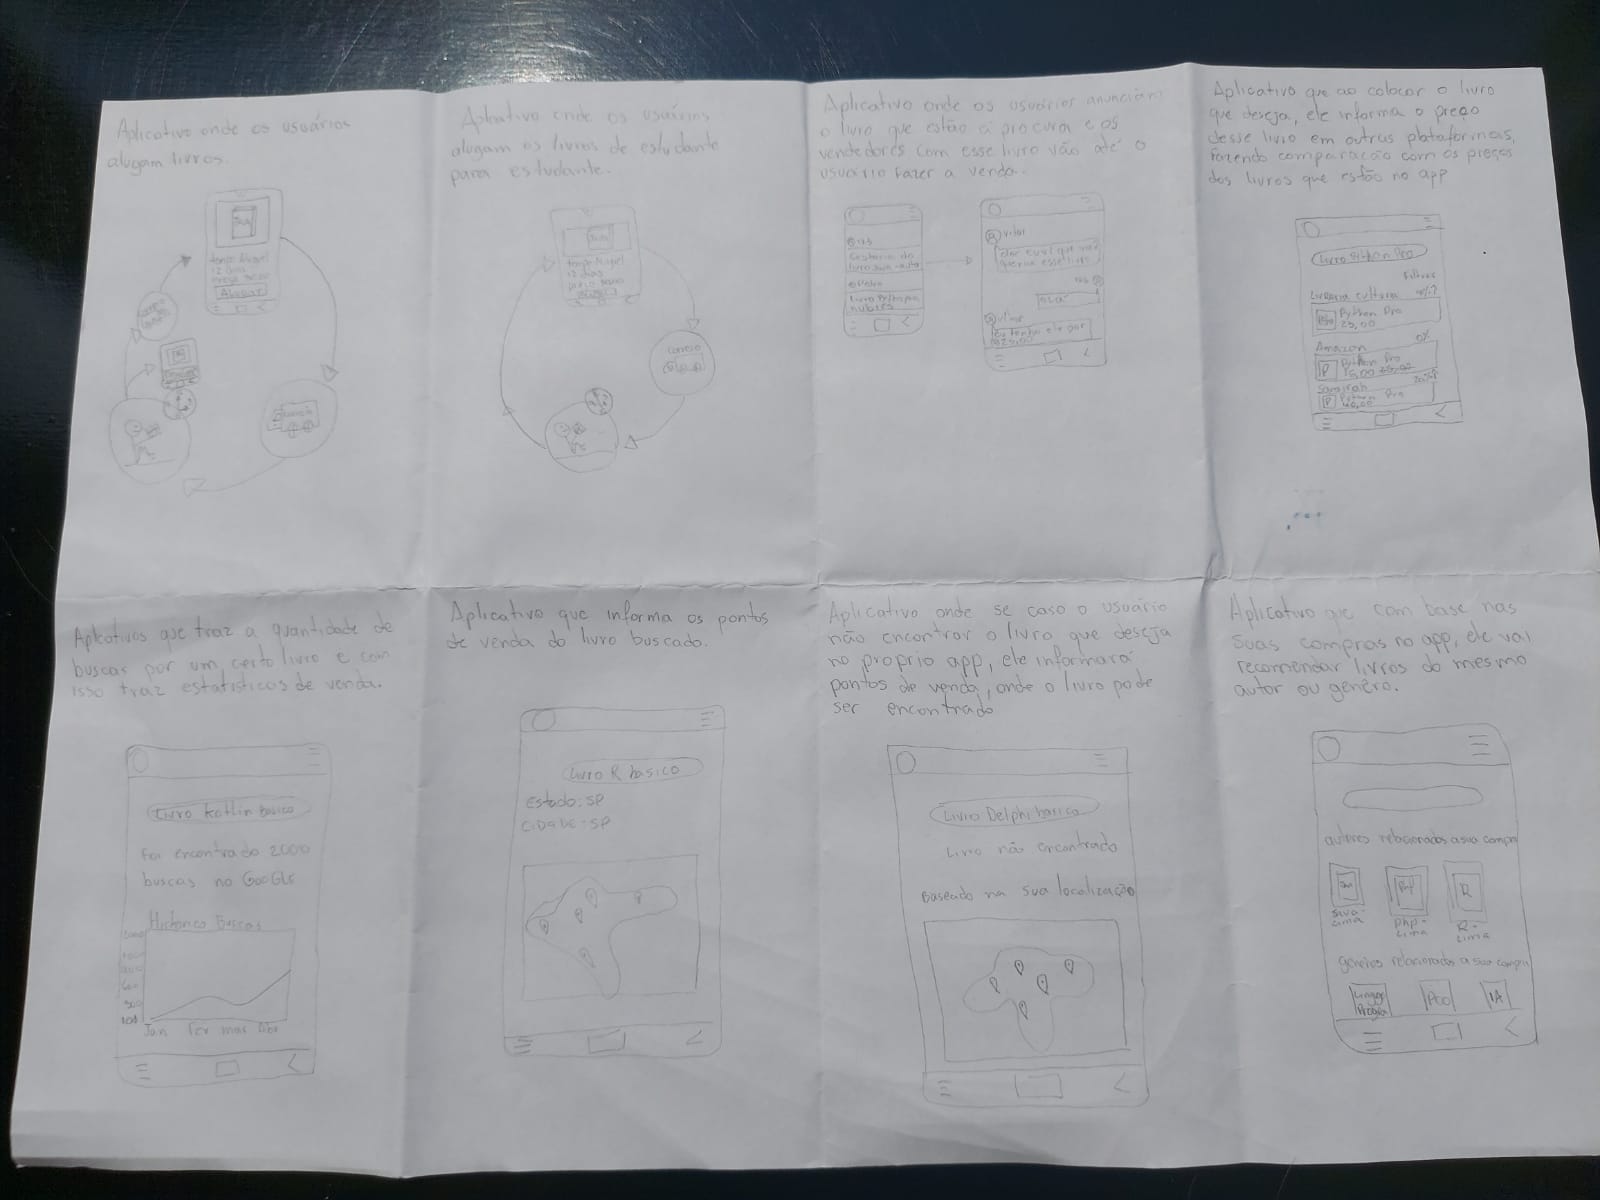 Aplicativo onde os usuários
alugam livros.
tempo Aluguel
12 dias
Alugar
Aplicativo onde os usuários
alugam os livros de estudante
para estudante.
tempo Aluguel
12 dias
correio
Aplicativo onde os usuários anunciam
o livro que estão á procura e os
vendedores com esse livro vão até o
usuário fazer a venda.
Gostaria do
livro
Olá
Eu tenho ele por
R$25,00
Aplicativo que ao colocar o livro
que deseja, ele informa o preço
desse livro em outras plataformas,
fazendo comparacão com os preços
dos livros que estão no app
Livro Python Pro
Filtrar
Livraria cultura
Python Pro
25,00
0%
Amazon
Python Pro
Python Pro
40,00
Aplicativos que traz a quantidade de
buscas por um certo livro e com
isso traz estatisticas de venda.
Livro Kotlin basico
Foi encontrado 2000
buscas no GooGLE
Historico Buscas
Jan Fev mar Abr
Aplicativo que informa os pontos
de venda do livro buscado.
Livro R basico
Estado: SP
CIDADE: SP
Aplicativo onde se caso o usuário
não encontrar o livro que deseja
no proprio app, ele informará
pontos de venda, onde o livro pode
ser encontrado
Livro Delphi basico
Livro não encontrado
Baseado na sua localização
Aplicativo que com base nas
suas compras no app, ele vai
recomendar livros do mesmo
autor ou genêro.
autores relacionados a sua compra
Php R
Java - Lima
Php - Lima
R - Lima
generos relacionados a sua compra
POO IA